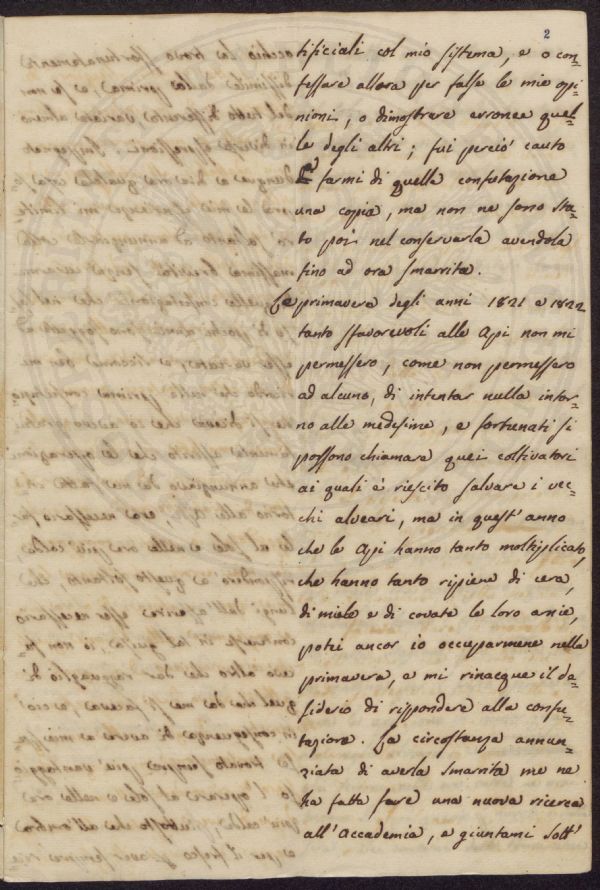 2
tificiali col mio sistema, e o con=
fessare allora per false le mie opi=
nioni, o dimostrare erronee quel=
le degli altri; fui perciò cauto
farmi di quella confutazione
una copia, ma non ne sono sta=
to poi nel conservarla avendola
fino ad ora smarrita.
La primavera degli anni 1821 e 1822
tanto sfavorevoli alle Api non mi
permessero, come non permessero
ad alcuno, di intentar nulla intor=
no alle medesime, e fortunati si
possono chiamare quei coltivatori
ai quali è riescito salvare i vec=
chi alveari, ma in quest' anno
che le Api hanno tanto moltiplicato,
che hanno tanto ripiene di cera,
di miele e di covate le loro arnie,
potei ancor io occuparmene nella
primavera, e mi rinacque il de=
siderio di rispondere alla confu=
tazione. La circostanza annun=
ziata di averla smarrita me ne
ha fatta fare una nuova ricerca
all' Accademia, e giuntami sott'